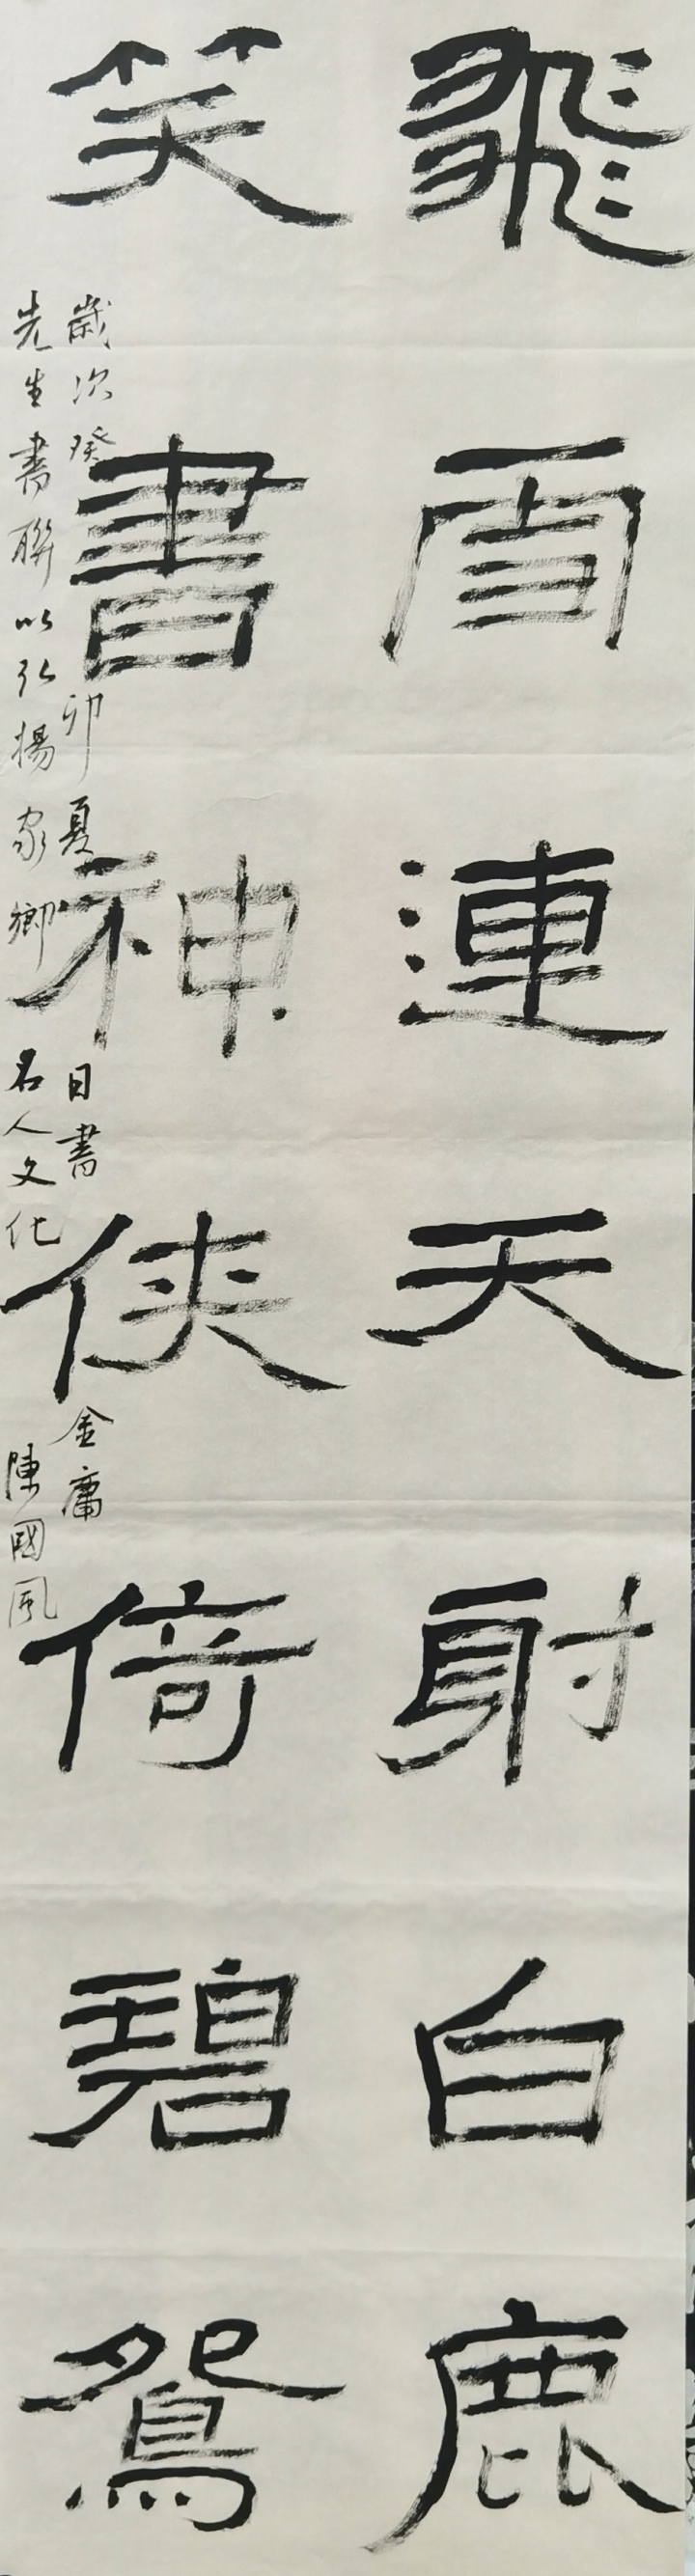 飛雪連天射白鹿
笑書神俠倚碧鴛
歲次癸卯夏日書金庸
先生書聯以弘揚家鄉名人文化陳國風